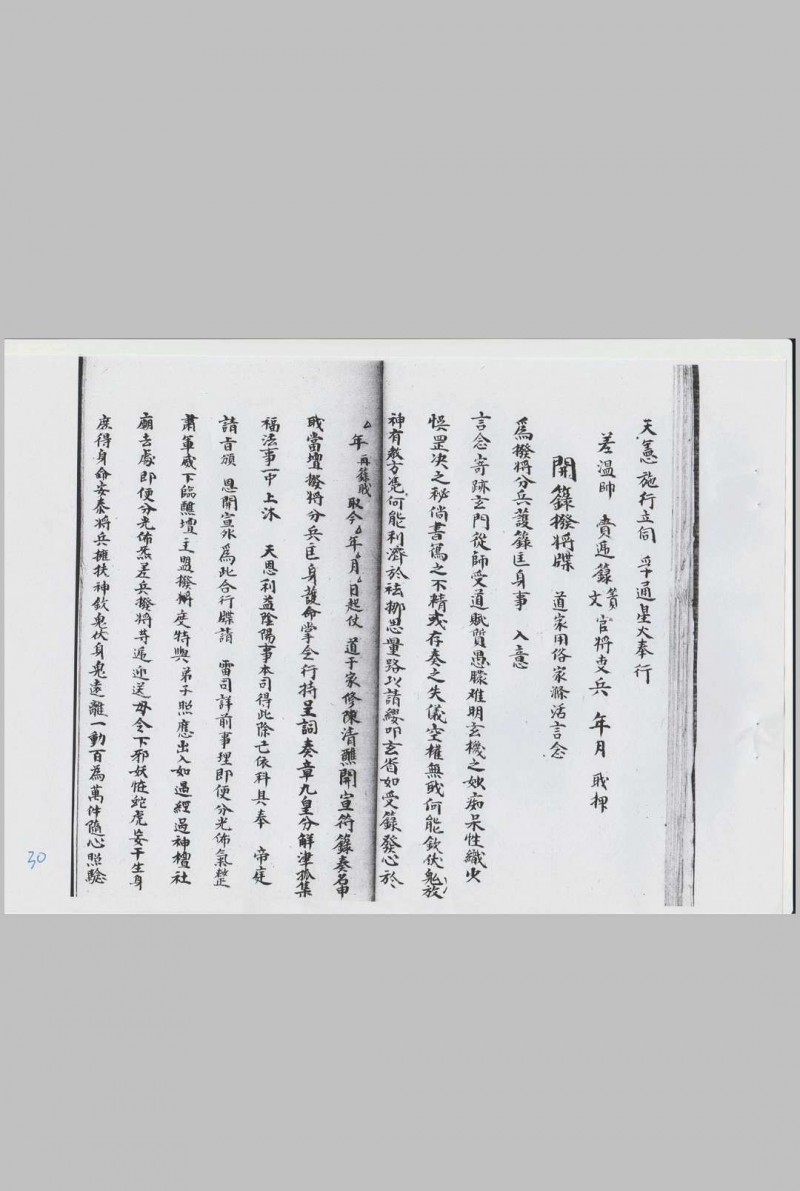 天憲施行立伺 孚通星火奉行
差温帥 賫逓籙文官將吏兵 年月 職押
開籙撥將牒 道家用俗家滌活言念
為撥將分兵護籙匡身事 入意
言念寄跡玄門從師受道賦質愚朦难明玄機之妙痴呆性識火
悞罡决之秘倘書篤之不精或存奏之失儀空權無职何能欽伏鬼放
神有教方凴何能利濟於祛挪思量路以請纓叩玄省如受籙發心於
年再籙职 取今年月日起仗 道于家修陳清醮開宣符籙奏名申
职當壇撥將分兵匡身護命掌仝行持呈詞奏章九皇分解津孤集
福法事一中上沐 天恩利益陰陽事本司得此除己依科具奉 帝庭
請旨頒 恩開宣外為此合行牒請 雷司詳前事理即便分光佈氣整
肅軍威下臨醮壇主盟撥將庻特與弟子照應出入如遇經過神檀社
廟去處即便分光佈炁差兵撥將荨逓迎送毋令下邪妖恠蛇虎妄干生身
庻得身命安泰將兵擁扶神欽鬼伏身鬼遠離一動百為萬件隨心照驗
30